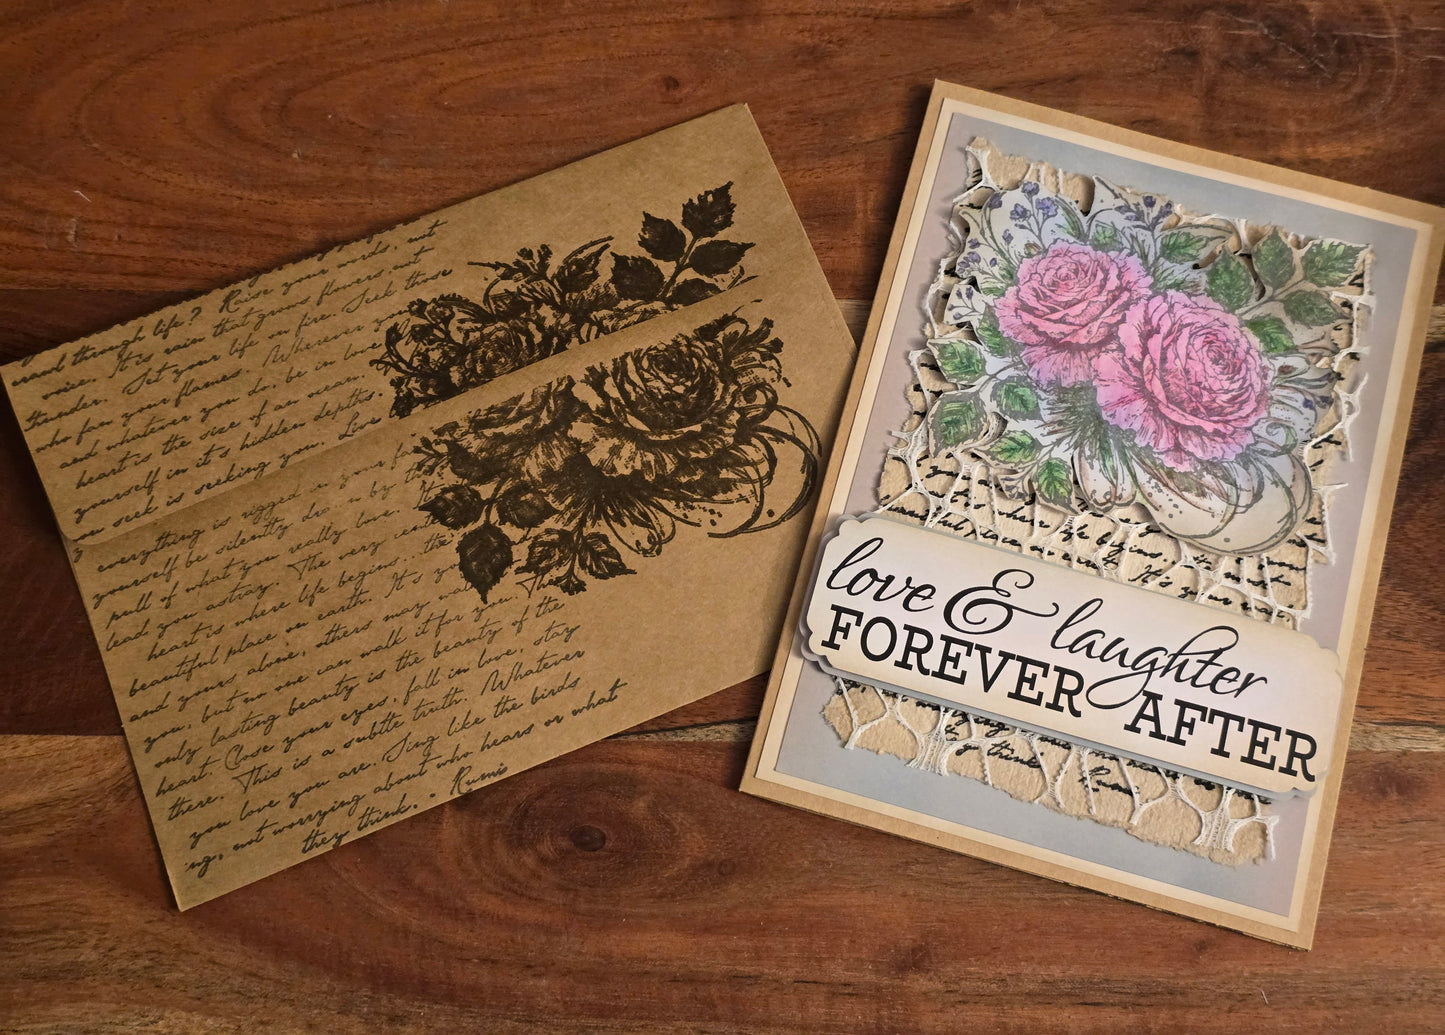 crawl through life? Raise your words, not
voice. It's rain that grows flowers, not
thunder. Set your life on fire. Seek those
who fan your flames. Wherever you
and whatever you do, be in love
heart is the size of an ocean.
yourself in it's hidden depths.
you seek is seeking you. Live
everything is rigged in your fa
yourself be silently dra n by the
pull of what you really love. It
lead you astray. The very cente
heart is where life begins... the
beautiful place on earth. It's yo
and yours alone, others may wal
you, but no one can walk it for you. The
only lasting beauty is the beauty of the
heart. Close your eyes, fall in love, stay
there. This is a subtle truth. Whatever
you love you are. Sing like the birds
ng, not worrying about who hears or what
they think. - Rumi
where life begins...
place on earth. It's your
love & laughter
FOREVER AFTER
they think. - Rumi